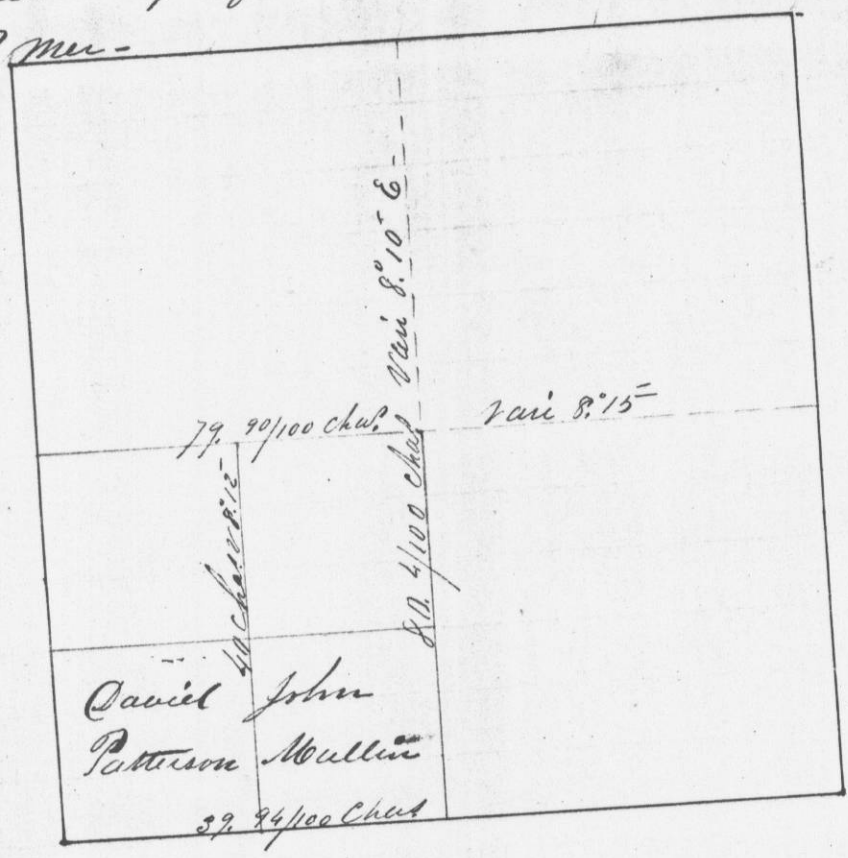 mer -
Vari 8.° 10 E
79. 90/100 Chas.
Vari 8.° 15
40 Chas V 8.° 12
80. 4/100 Chas
David John
Patterson Mullin
39. 94/100 Chas